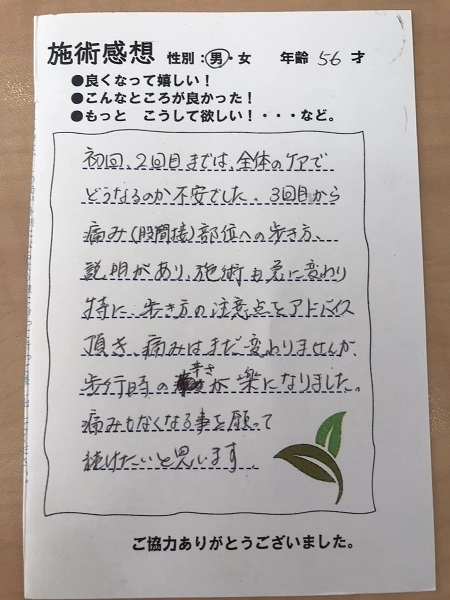 施術感想 性別：男・女 年齢 56 才
●良くなって嬉しい！
●こんなところが良かった！
●もっと こうして欲しい！・・・など。
初回、2回目までは、全体のケアで
どうなるのか不安でした。3回目から
痛み(股間接)部位への歩き方、
説明があり、施術も急に変わり
特に、歩き方の注意点をアドバイス
頂き、痛みはまだ変わりませんが、
歩行時の幸さが楽になりました。
痛みもなくなる事を願って
続けたいと思います。
ご協力ありがとうございました。